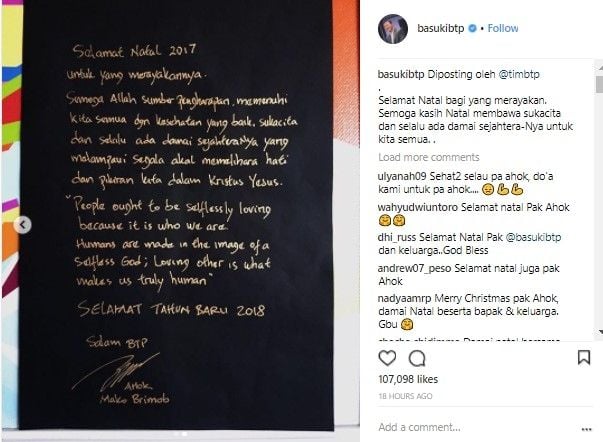 Selamat Natal 2017
untuk yang merayakannya.
Semoga Allah sumber pengharapan, memenuhi
kita semua dgn kesehatan yang baik, sukacita
dan selalu ada damai sejahteraNya yang
melampaui segala akal memelihara hati
dan pikiran kita dalam Kristus Yesus.
"People ought to be selflessly loving
because it is who we are.
Humans are made in the image of a
Selfless God; Loving other is what
makes us truly human"
SELAMAT TAHUN BARU 2018
Salam BTP
Ahok
Mako Brimob
basukibtp • Follow
basukibtp Diposting oleh @timbtp
.
Selamat Natal bagi yang merayakan.
Semoga kasih Natal membawa sukacita
dan selalu ada damai sejahtera-Nya untuk
kita semua. .
Load more comments
ulyanah09 Sehat2 selau pa ahok, do'a
kami untuk pa ahok....
wahyudwiuntoro Selamat natal Pak Ahok
dhi_russ Selamat Natal Pak @basukibtp
dan keluarga..God Bless
andrew07_peso Selamat natal juga pak
Ahok
nadyaamrp Merry Christmas pak Ahok,
damai Natal beserta bapak & keluarga.
Gbu
107,098 likes
18 HOURS AGO
Add a comment...